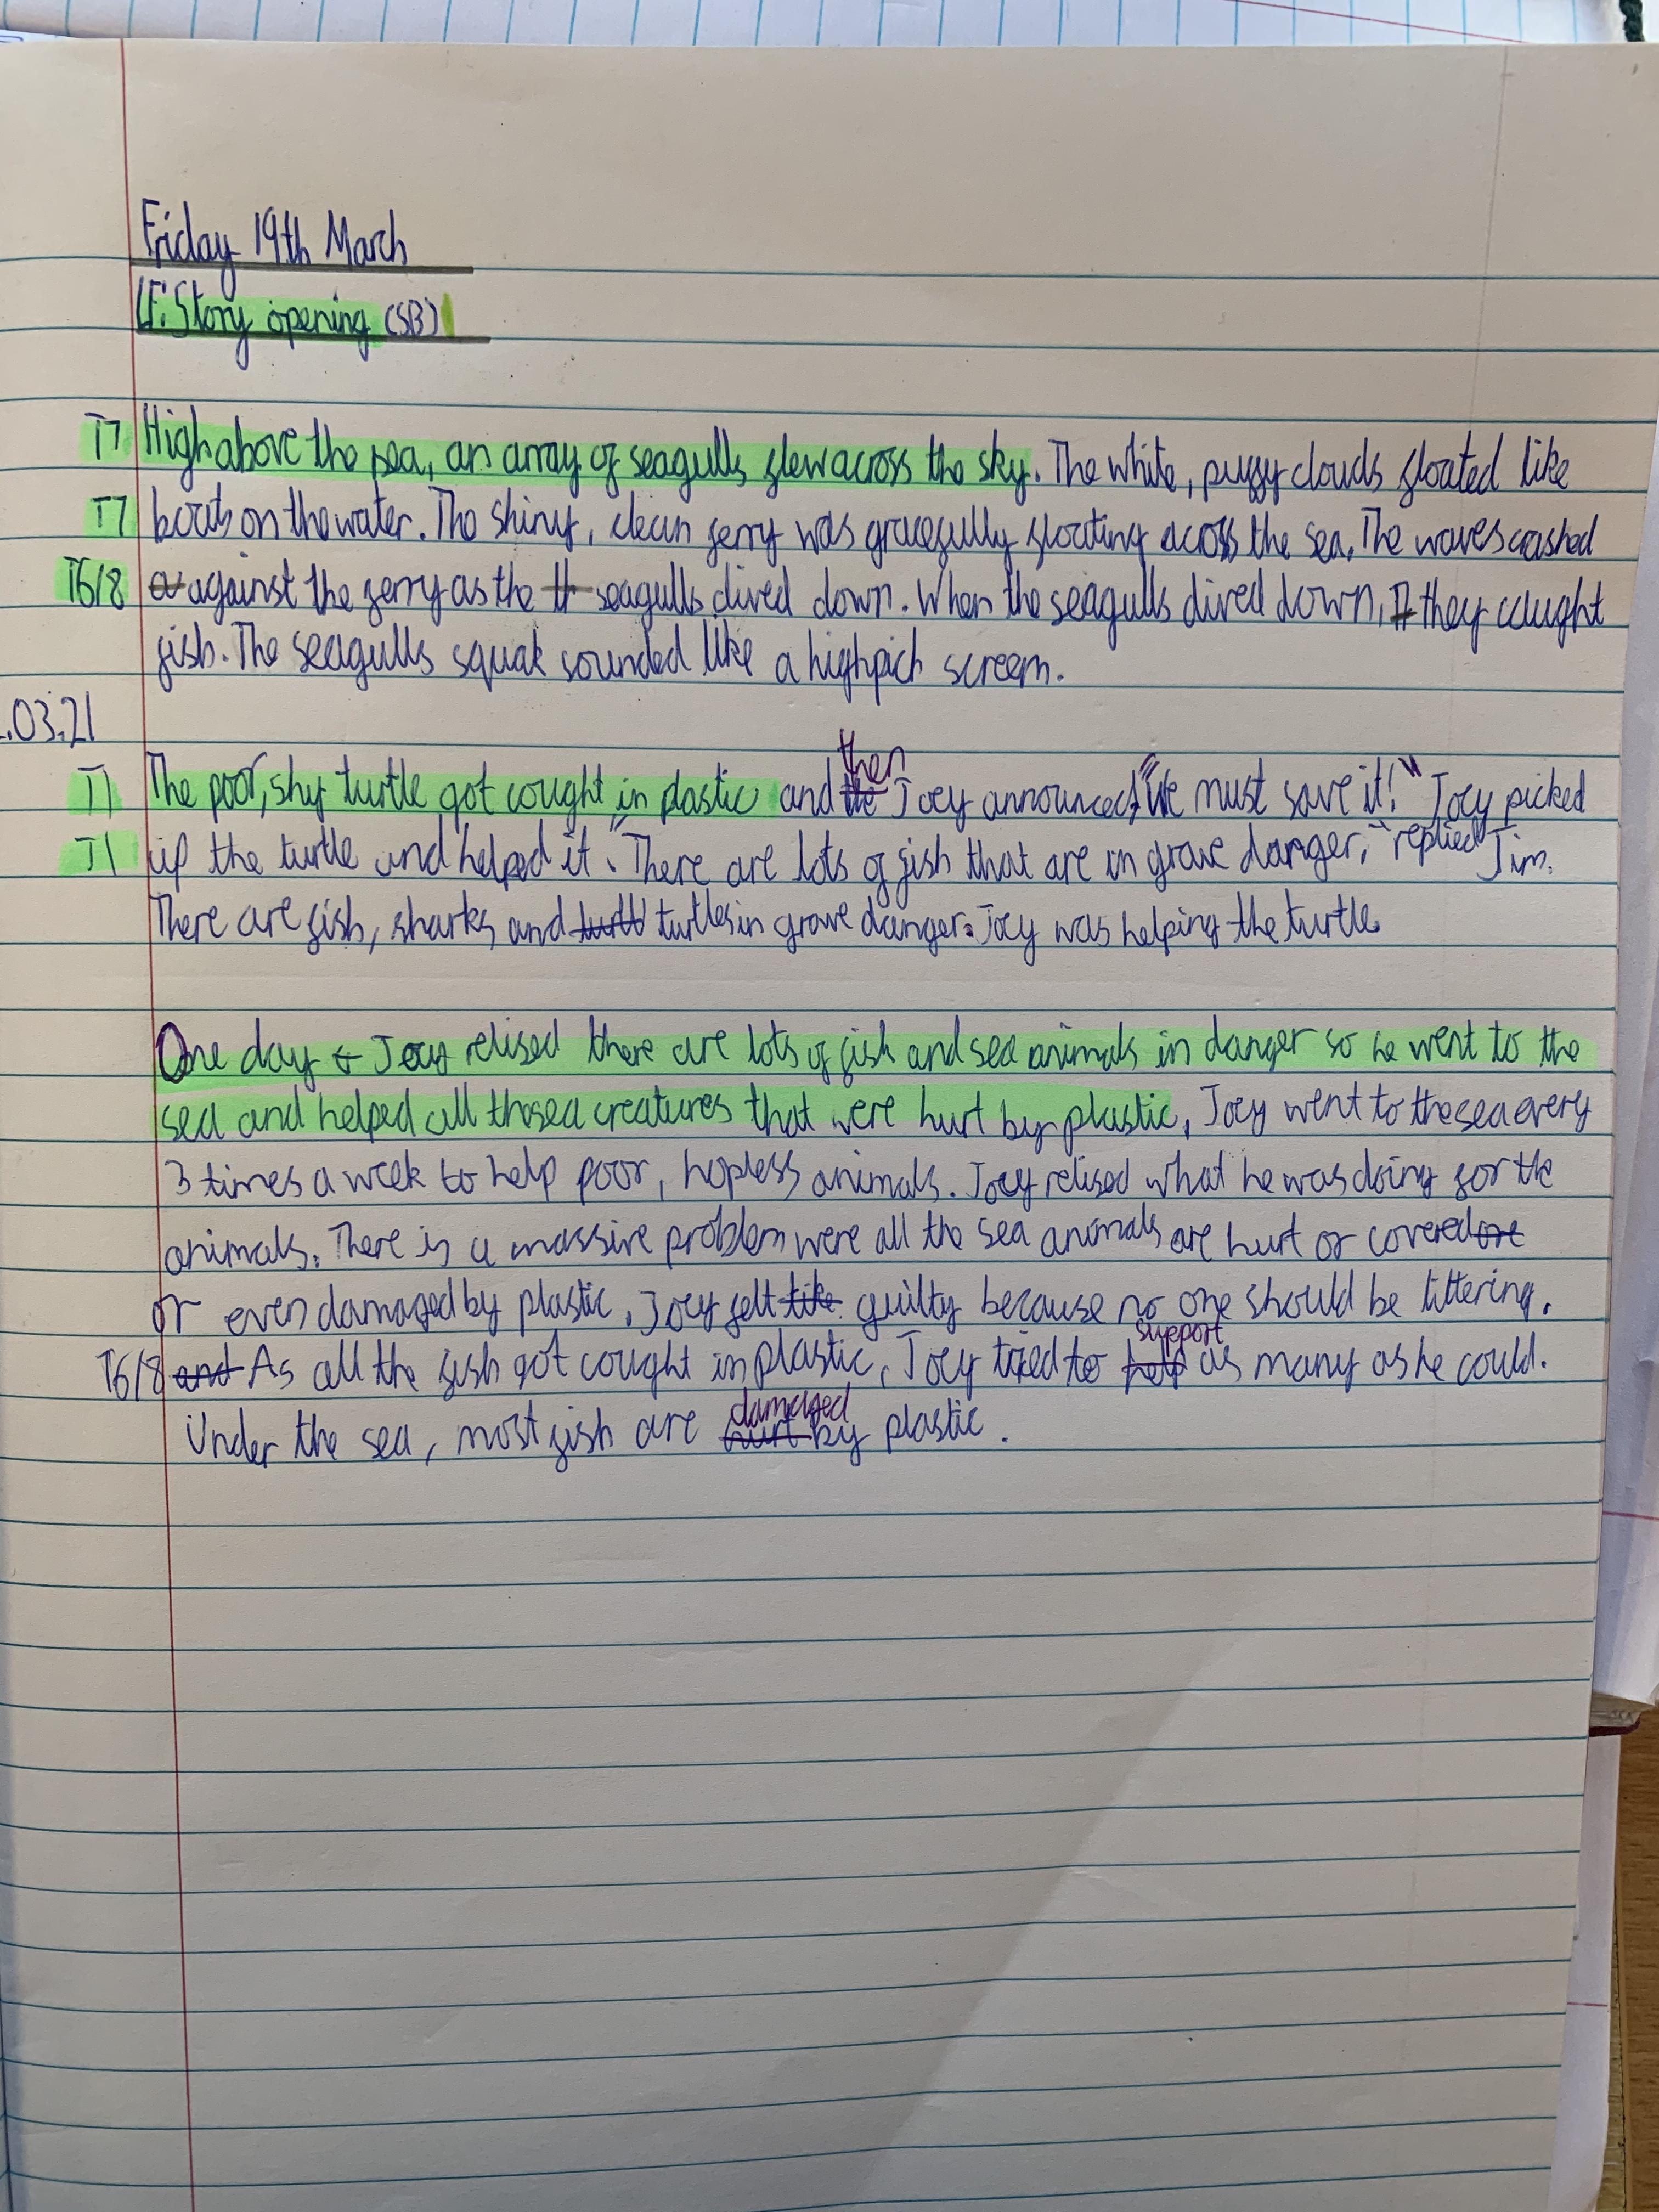 Friday 19th March
LF: Story opening (SB)
T7 High above the sea, an array of seagulls flew across the sky. The white, puffy clouds floated like
T7 boats on the water. The shiny, clean ferry was gracefully floating across the sea. The waves crashed
T6/8 against the ferry as the seagulls dived down. When the seagulls dived down, they caught
fish. The seagulls squak sounded like a highpich screem.
.03.21
T1 The poor, shy turtle got cought in plastic and then Joey announced, "We must save it!" Joey picked
T1 up the turtle and helped it. "There are lots of fish that are in grave danger," replied Jim.
There are fish, sharks, and turtles in grave danger. Joey was helping the turtle.
One day Joey relised there are lots of fish and sea animals in danger so he went to the
sea and helped all thosea creatures that were hurt by plastic, Joey went to the sea every
3 times a week to help poor, hopless animals. Joey relised what he was doing for the
animals. There is a massive problem were all the sea animals are hurt or covered
or even damaged by plastic. Joey felt guilty because no one should be littering.
T6/8 As all the fish got cought in plastic, Joey tried to support as many as he could.
Under the sea, most fish are damaged by plastic.